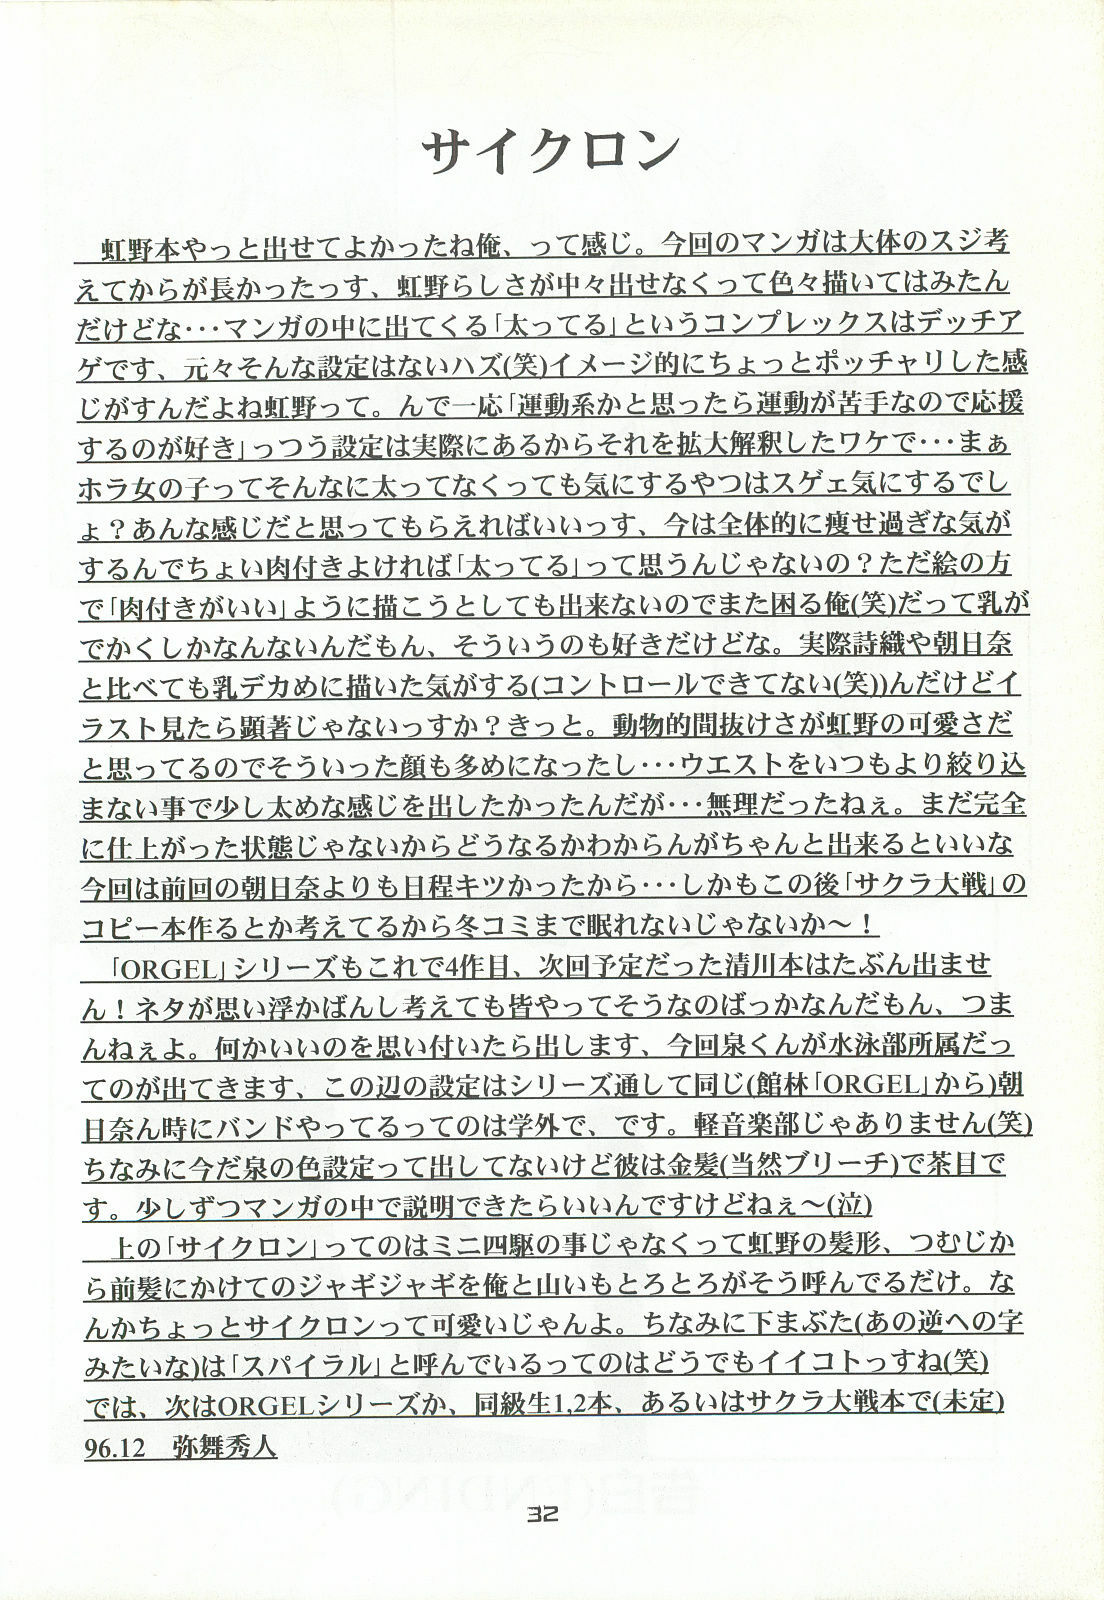 サイクロン
虹野本やっと出せてよかったね俺、って感じ。今回のマンガは大体のスジ考
えてからが長かったっす、虹野らしさが中々出せなくって色々描いてはみたん
だけどな･･･マンガの中に出てくる「太ってる」というコンプレックスはデッチア
ゲです、元々そんな設定はないハズ(笑)イメージ的にちょっとポッチャリした感
じがすんだよね虹野って。んで一応「運動系かと思ったら運動が苦手なので応援
するのが好き」っつう設定は実際にあるからそれを拡大解釈したワケで･･･まぁ
ホラ女の子ってそんなに太ってなくっても気にするやつはスゲェ気にするでし
ょ？あんな感じだと思ってもらえればいいっす、今は全体的に痩せ過ぎな気が
するんでちょい肉付きよければ「太ってる」って思うんじゃないの？ただ絵の方
で「肉付きがいい」ように描こうとしても出来ないのでまた困る俺(笑)だって乳が
でかくしかなんないんだもん、そういうのも好きだけどな。実際詩織や朝日奈
と比べても乳デカめに描いた気がする(コントロールできてない(笑))んだけどイ
ラスト見たら顕著じゃないっすか？きっと。動物的間抜けさが虹野の可愛さだ
と思ってるのでそういった顔も多めになったし･･･ウエストをいつもより絞り込
まない事で少し太めな感じを出したかったんだが･･･無理だったねぇ。まだ完全
に仕上がった状態じゃないからどうなるかわからんがちゃんと出来るといいな
今回は前回の朝日奈よりも日程キツかったから･･･しかもこの後「サクラ大戦」の
コピー本作るとか考えてるから冬コミまで眠れないじゃないか〜！
「ORGEL」シリーズもこれで4作目、次回予定だった清川本はたぶん出ませ
ん！ネタが思い浮かばんし考えても皆やってそうなのばっかなんだもん、つま
んねぇよ。何かいいのを思い付いたら出します、今回泉くんが水泳部所属だっ
てのが出てきます、この辺の設定はシリーズ通して同じ(館林「ORGEL」から)朝
日奈ん時にバンドやってるってのは学外で、です。軽音楽部じゃありません(笑)
ちなみに今だ泉の色設定って出してないけど彼は金髪(当然ブリーチ)で茶目で
す。少しずつマンガの中で説明できたらいいんですけどねぇ〜(泣)
上の「サイクロン」ってのはミニ四駆の事じゃなくって虹野の髪形、つむじか
ら前髪にかけてのジャギジャギを俺と山いもとろとろがそう呼んでるだけ。な
んかちょっとサイクロンって可愛いじゃんよ。ちなみに下まぶた(あの逆への字
みたいな)は「スパイラル」と呼んでいるってのはどうでもイイコトっすね(笑)
では、次はORGELシリーズか、同級生1,2本、あるいはサクラ大戦本で(未定)
96.12　弥舞秀人
32